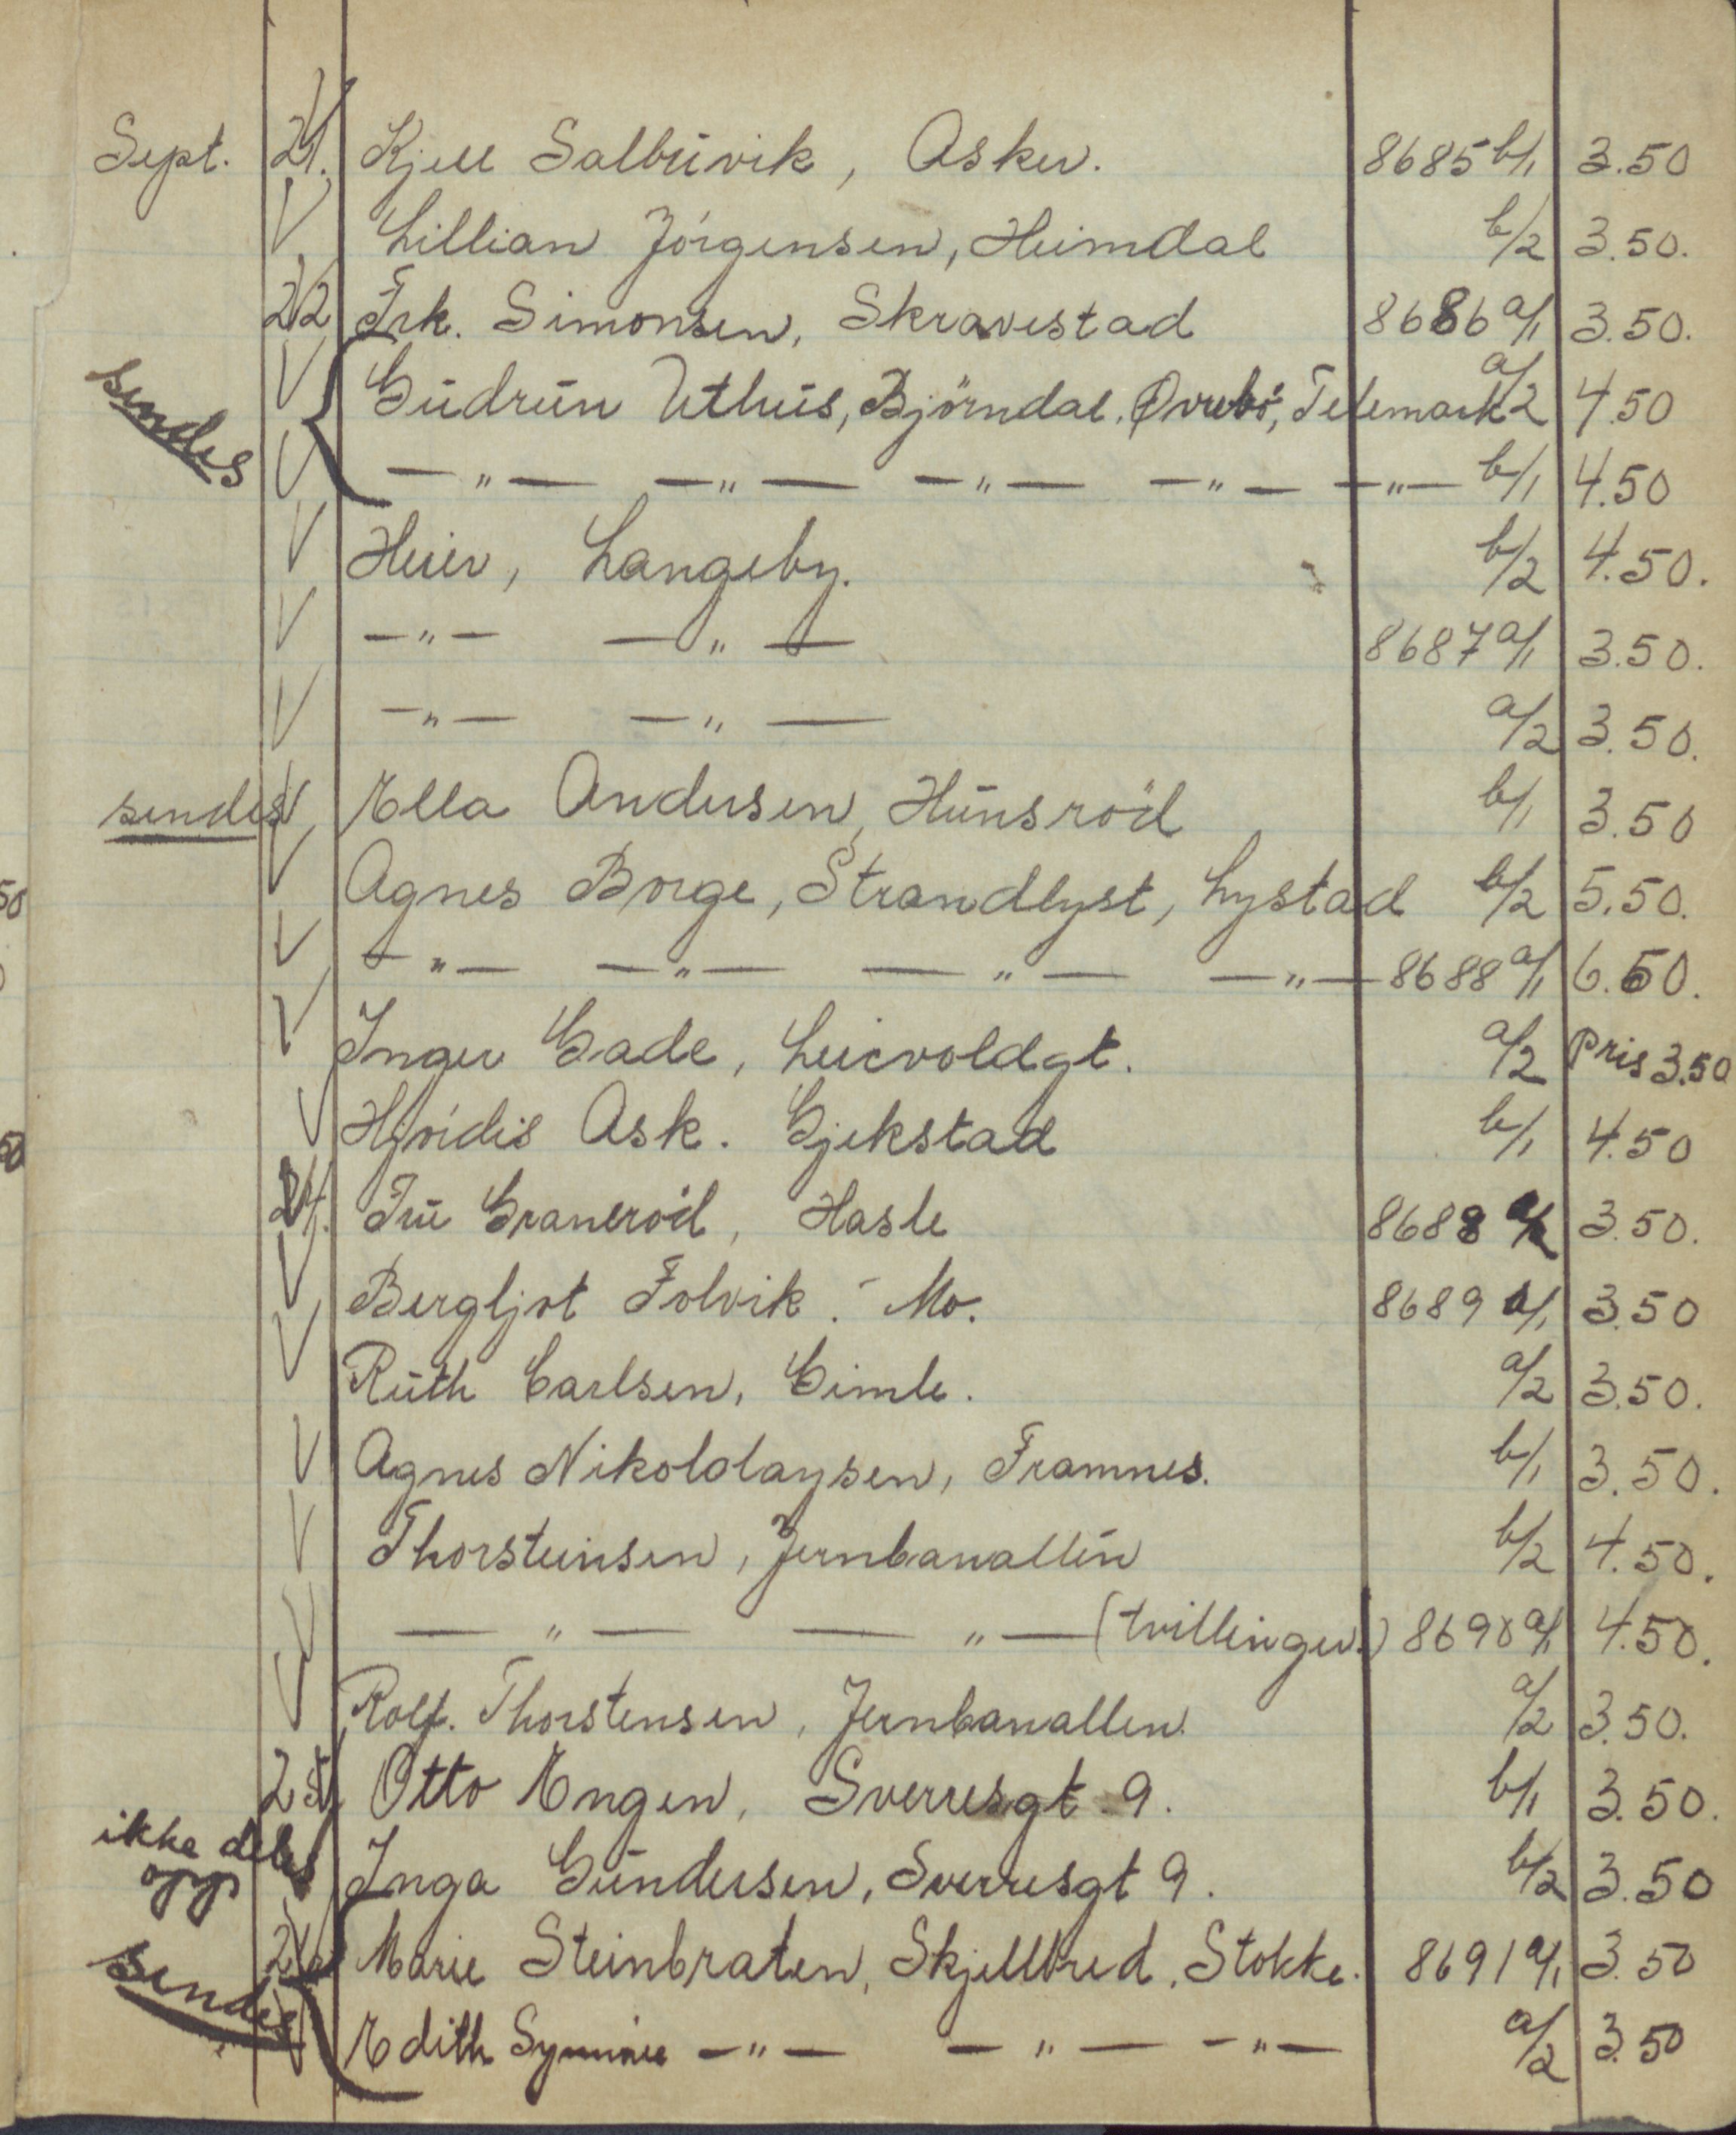 Sept. 21. Kjell Salbuvik, Asker. 8685 b/1 3.50
V Lillian Jörgensen, Heimdal b/2 3.50.
22 Frk. Simonsen, Skravestad 8686 a/1 3.50.
sendes V Gudrun Uthus, Björndal. Øvrebö, Telemark a/2 4.50
V —"— —"— —"— —"— —"— b/1 4.50
V Heier, Langeby. b/2 4.50.
V —"— —"— 8687 a/1 3.50.
V —"— —"— a/2 3.50.
sendes V Ella Andersen, Hunsröd b/1 3.50
V Agnes Borge, Strandlyst, Lystad b/2 5.50.
V —"— —"— —"— —"— 8688 a/1 6.50.
V Inger Gade, Leirvoldgt. a/2 Pris 3.50
V Hjördis Ask. Gjekstad b/1 4.50
24. Fru Graneröd, Hasle 8688 3.50.
V Bergljot Folvik. Mo. 8689 a/1 3.50
V Ruth Carlsen, Gimle. a/2 3.50.
V Agnes Nikoldaysen, Framnes. b/1 3.50.
V Thorsteinsen, Jernbanallén b/2 4.50.
V —"— —"— (tvillinger.) 8690 a/1 4.50.
V Rolf. Thorstensen, Jernbanallen. a/2 3.50.
25 Otto Engen, Sverresgt 9. b/1 3.50.
ikke deles opp Inga Gundersen, Sverresgt 9. b/2 3.50
sendes Marie Steinbraten, Skjellbred, Stokke. 8691 a/1 3.50
V Edith —"— —"— —"— a/2 3.50